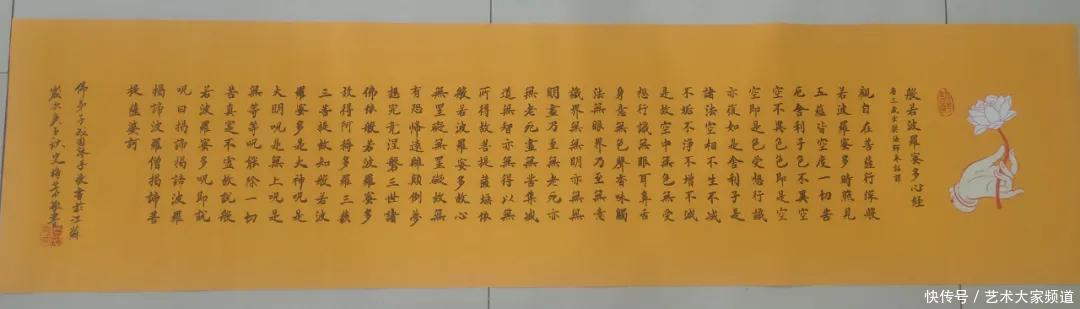 般若波羅蜜多心經
唐三藏玄奘法師奉詔譯
觀自在菩薩行深般
若波羅蜜多時照見
五蘊皆空度一切苦
厄舍利子色不異空
空不異色色即是空
空即是色受想行識
亦復如是舍利子是
諸法空相不生不滅
不垢不淨不增不減
是故空中無色無受
想行識無眼耳鼻舌
身意無色聲香味觸
法無眼界乃至無意
識界無無明亦無無
明盡乃至無老死亦
無老死盡無苦集滅
道無智亦無得以無
所得故菩提薩埵依
般若波羅蜜多故心
無罣礙無罣礙故無
有恐怖遠離顛倒夢
想究竟涅槃三世諸
佛依般若波羅蜜多
故得阿耨多羅三藐
三菩提故知般若波
羅蜜多是大神呪是
大明呪是無上呪是
無等等呪能除一切
苦真實不虛故說般
若波羅蜜多呪即說
呪曰揭諦揭諦波羅
揭諦波羅僧揭諦菩
提薩婆訶
佛弟子書於江蘇
歲次庚子秋
快传号 / 艺术大家频道